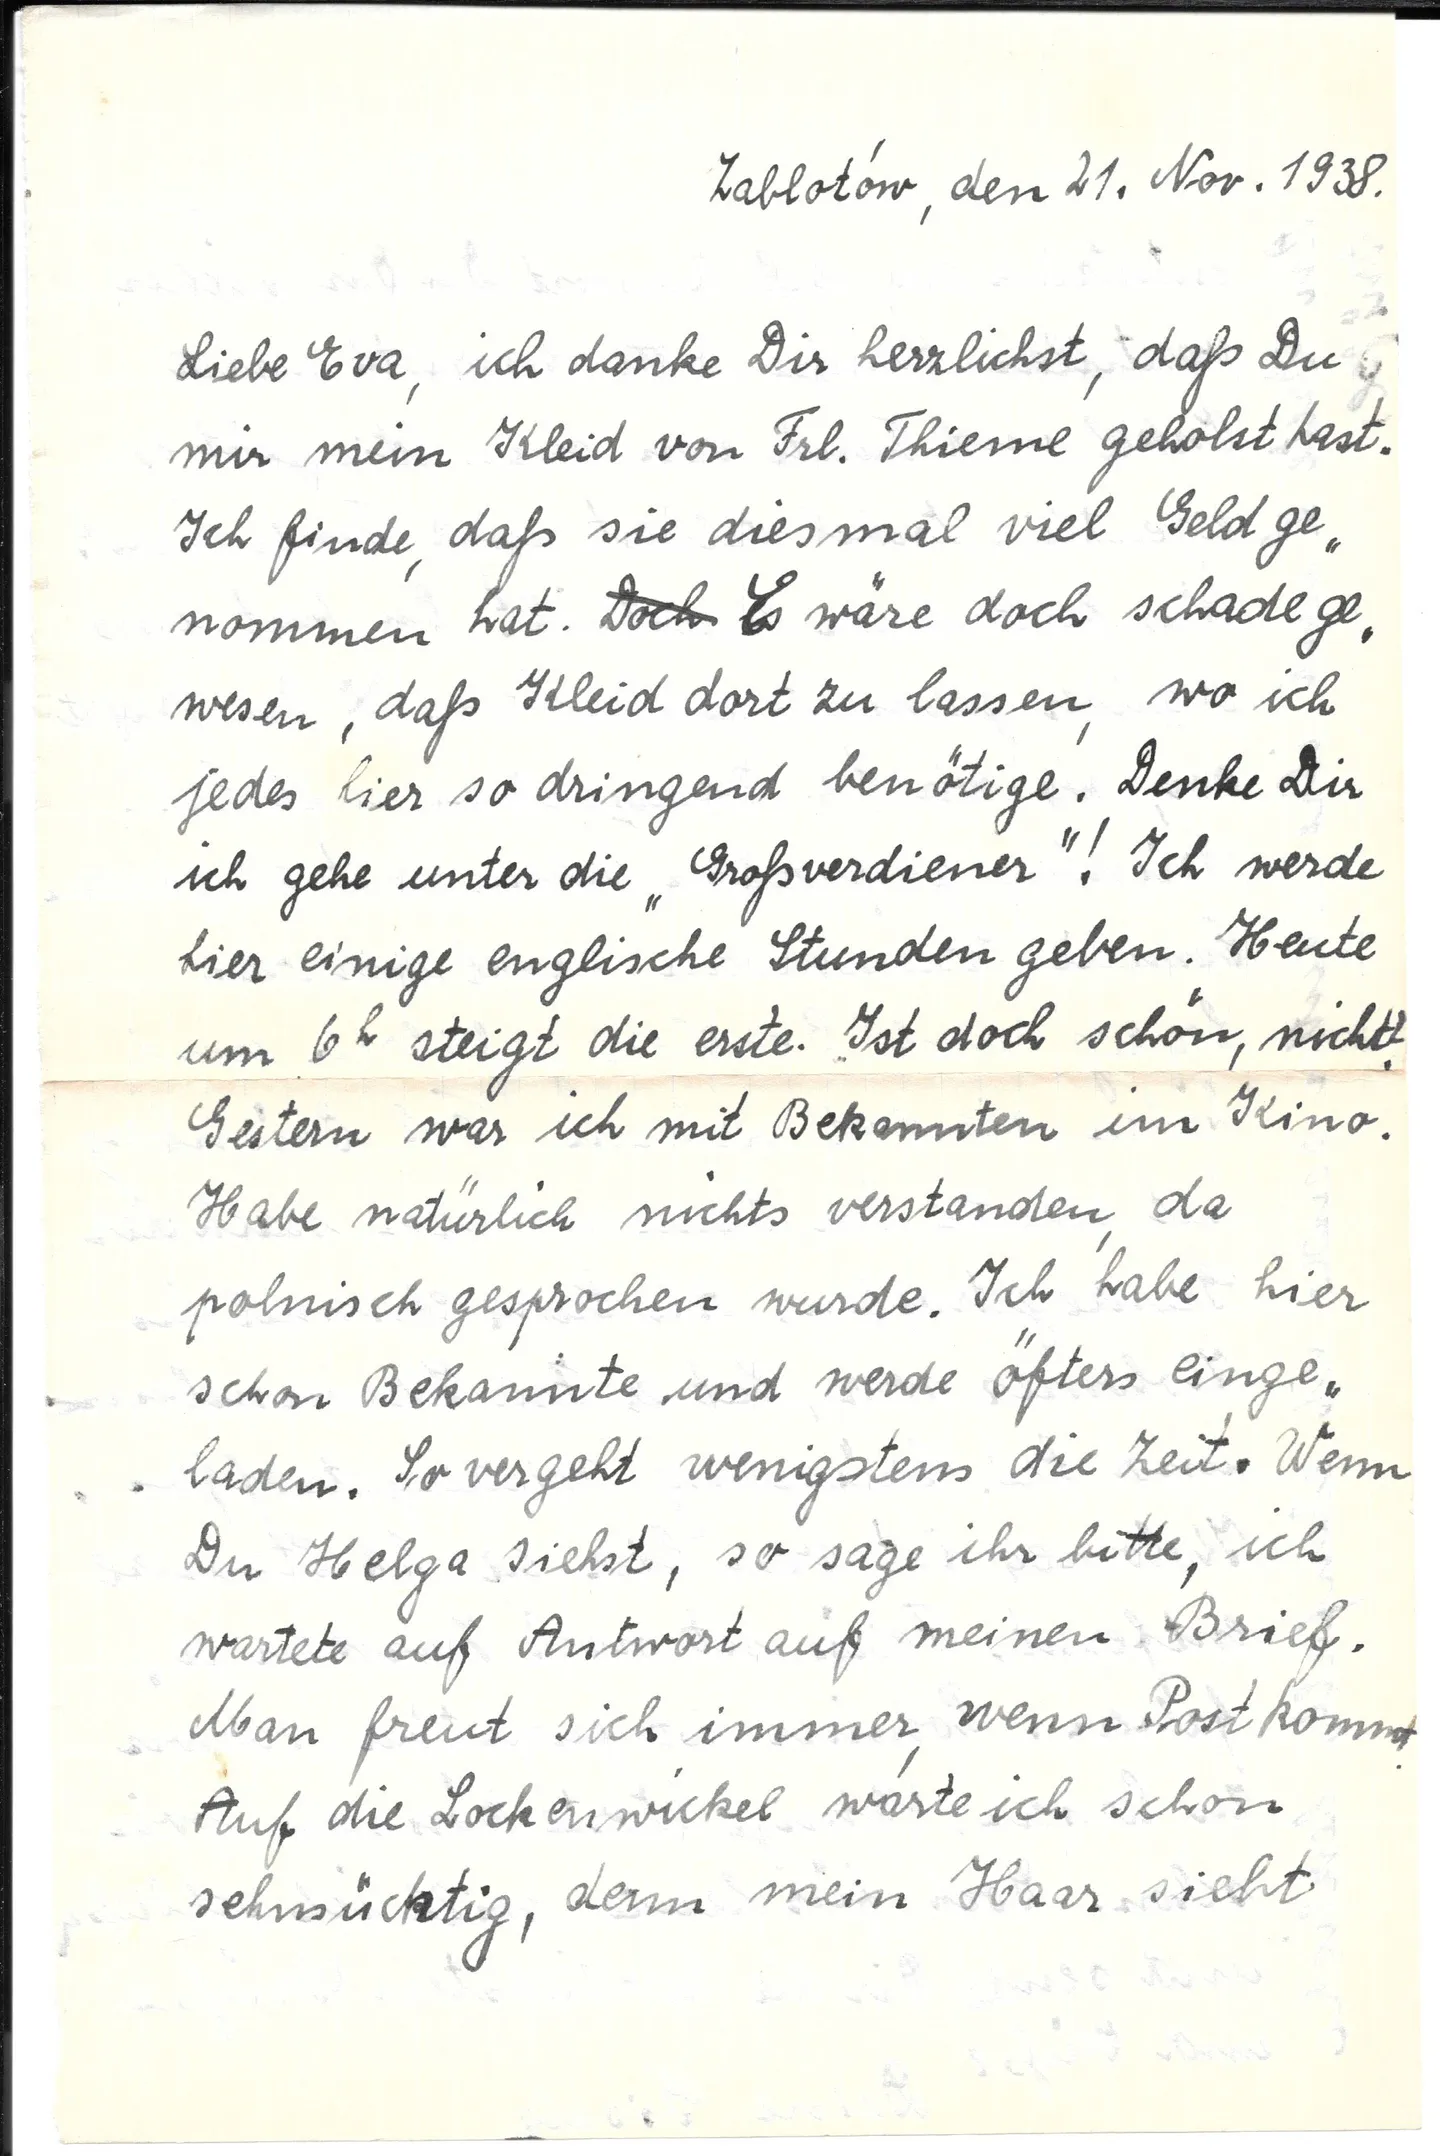 Zablotów, den 21. Nov. 1938.
Liebe Eva, ich danke Dir herzlichst, daß Du
mir mein Kleid von Frl. Thieme geholst hast.
Ich finde, daß sie diesmal viel Geld ge„
nommen hat. Doch Es wäre doch schade ge„
wesen, daß Kleid dort zu lassen, wo ich
jedes hier so dringend benötige. Denke Dir
ich gehe unter die „Großverdiener"! Ich werde
hier einige englische Stunden geben. Heute
um 6h steigt die erste. Ist doch schön, nicht?
Gestern war ich mit Bekannten im Kino.
Habe natürlich nichts verstanden, da
polnisch gesprochen wurde. Ich habe hier
schon Bekannte und werde öfters einge„
laden. So vergeht wenigstens die Zeit. Wenn
Du Helga siehst, so sage ihr bitte, ich
wartete auf Antwort auf meinen Brief.
Man freut sich immer, wenn Post kommt.
Auf die Lockenwickel warte ich schon
sehnsüchtig, denn mein Haar sieht